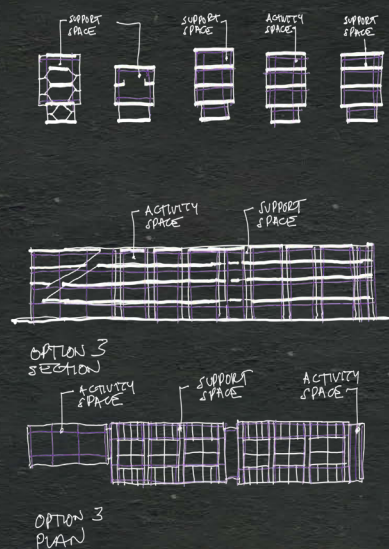 SUPPORT
SPACE
SUPPORT
SPACE
ACTIVITY
SPACE
SUPPORT
SPACE
ACTIVITY
SPACE
SUPPORT
SPACE
OPTION 3
SECTION
ACTIVITY
SPACE
SUPPORT
SPACE
ACTIVITY
SPACE
OPTION 3
PLAN